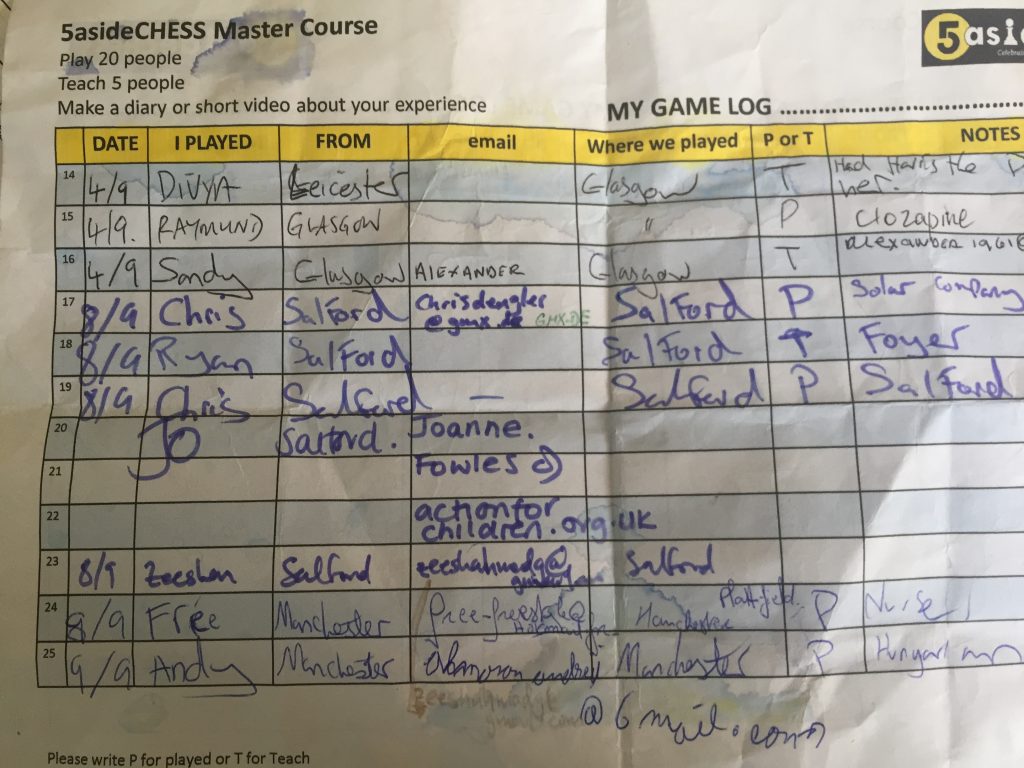 5asideCHESS Master Course
Play 20 people
Teach 5 people
Make a diary or short video about your experience
5asid
MY GAME LOG
DATE I PLAYED FROM email Where we played P or T NOTES
14 4/9 DIVYA Leicester Glasgow T Had Harris the
her.
15 4/9. RAYMUND GLASGOW " P Clozapine
16 4/9 Sandy Glasgow ALEXANDER Glasgow T ALEXANDER 1961@
17 8/9 Chris Salford Chrisdengler
@gmx.de GMX.DE Salford P Solar company
18 8/9 Ryan Salford Salford T Foyer
19 8/9 Chris Salford — Salford P Salford
20 Jo Salford. Joanne.
21 Fowles @
22 actionfor
children.org.uk
23 8/9 Zeeshan Salford zeeshahmadg@ Salford
24 8/9 Free Manchester free-freestyle@ Manchester Plattfield P Nurse
25 9/9 Andy Manchester Manchester P Hungarian
@Gmail.com
Please write P for played or T for Teach